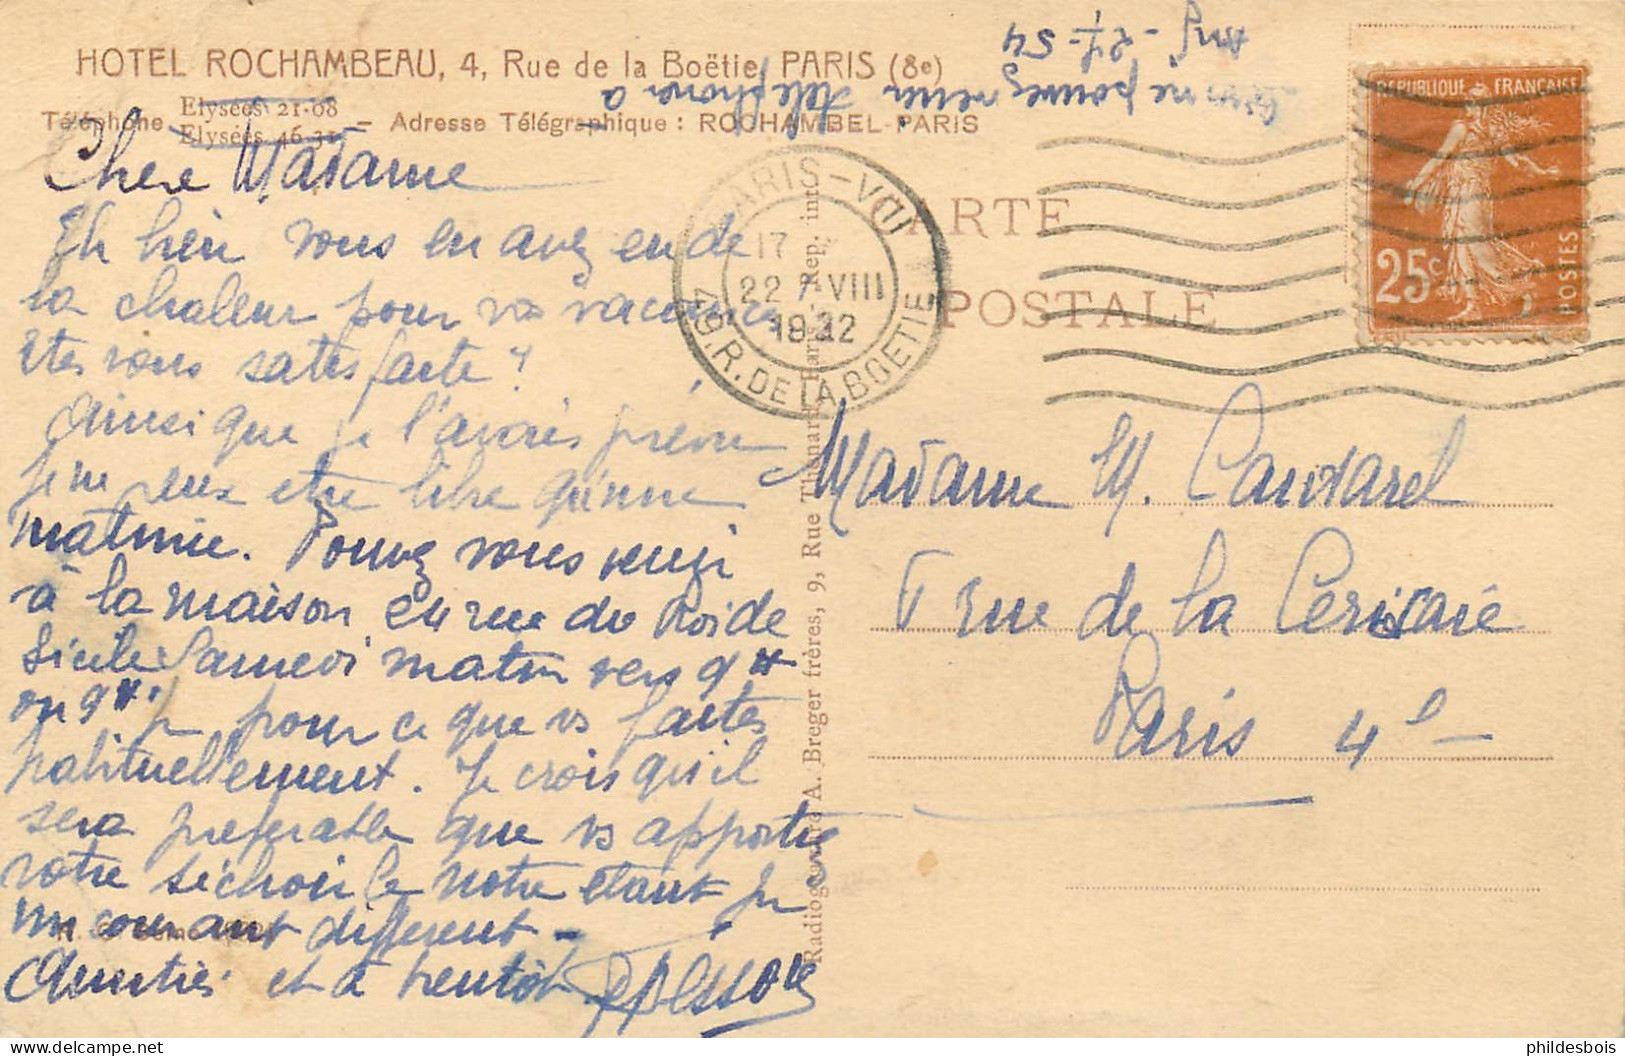 HOTEL ROCHAMBEAU, 4, Rue de la Boëtie, PARIS (8e)
Téléphone Elysées 21-08
Elysées 46-31 — Adresse Télégraphique : ROCHAMBEL-PARIS
pouvez venir téléphoner à
Anj - 27-54
Chère Madame
Eh bien vous en avez eu de
la chaleur pour vos vacances
Etes vous satisfaite ?
Ainsi que je l'avais prévu
je ne peux etre libre qu'une
matinée. Pouvez vous venir
à la maison 24 rue du Roi de
Sicile Samedi matin vers 9H
ou 9H ½ pour ce que vs faites
habituellement. Je crois qu'il
sera préférable que vs apportiez
votre séchoir le notre étant pr
un courant différent -
Amitiés et à bientôt
R. C. Seine
CARTE
POSTALE
PARIS-VIII
17
22 VIII
1932
49.R.DE LA BOETIE
REPUBLIQUE FRANÇAISE
25c
POSTES
Radiogravure A. Breger frères, 9, Rue Thénard, Paris. Rep. int.
Madame M. Candarel
5 rue de la Cerisaie
Paris 4e
phildesbois